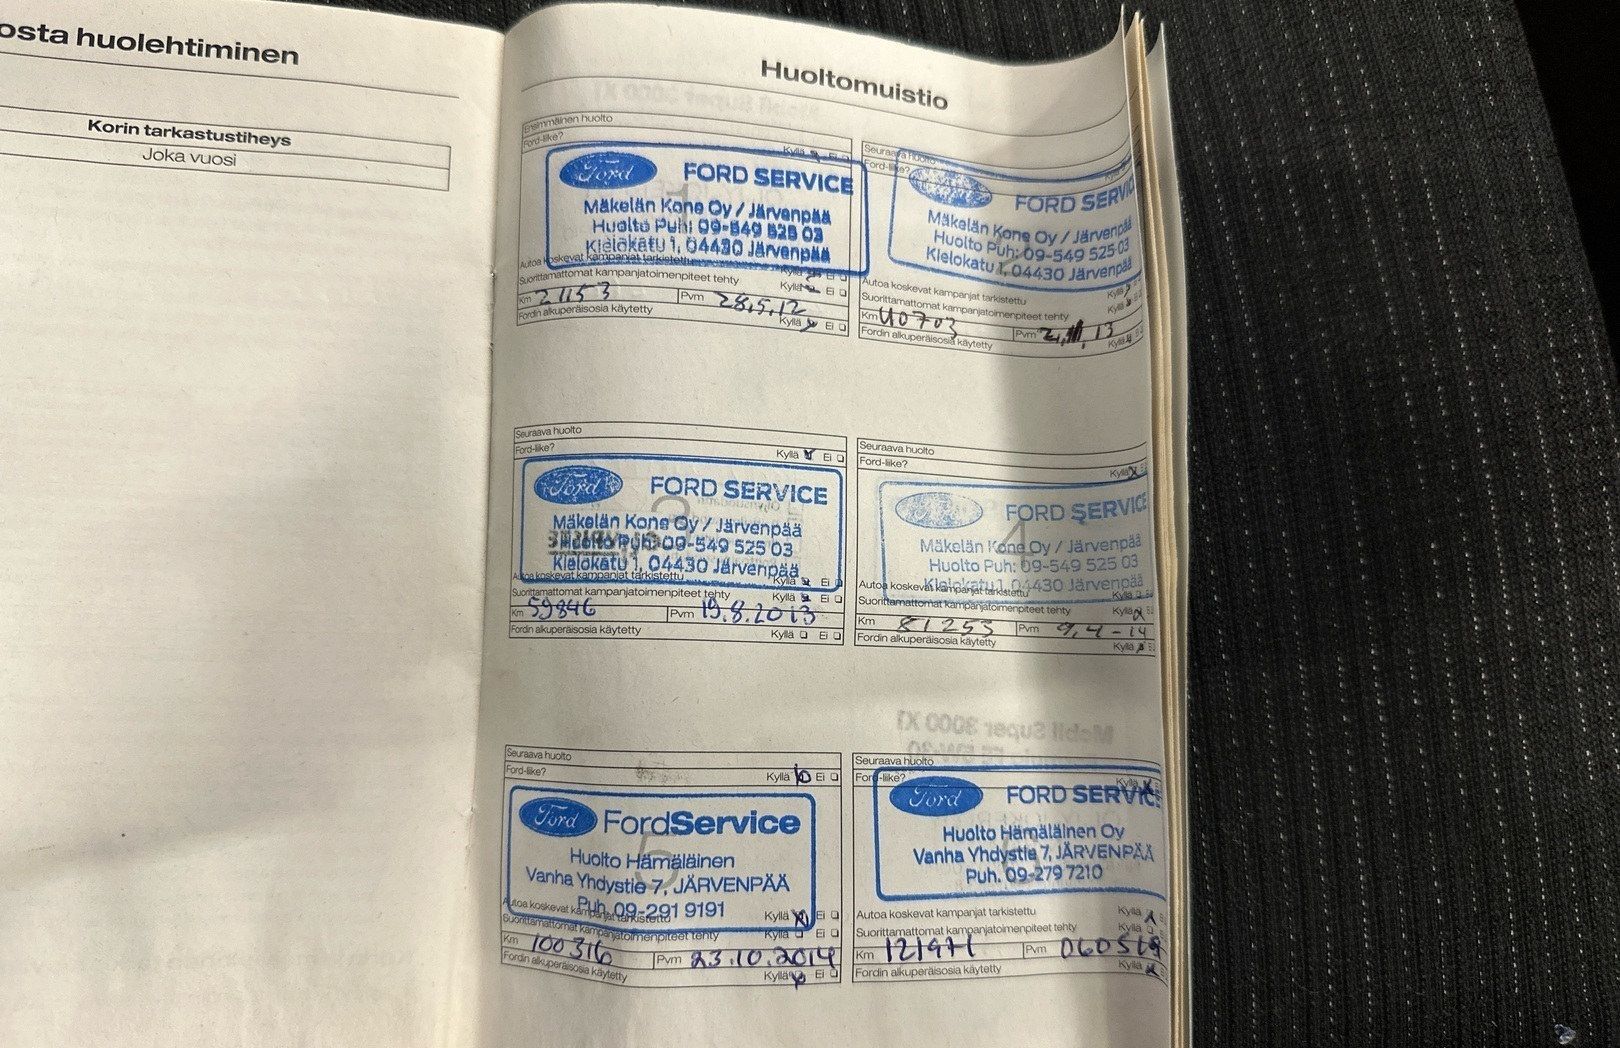 osta huolehtiminen
Korin tarkastustiheys
Joka vuosi
Huoltomuistio
Ensimmäinen huolto
Ford-liike?
Kyllä Ei
Ford
FORD SERVICE
Mäkelän Kone Oy / Järvenpää
Huolto Puh: 09-549 525 03
Kielokatu 1, 04430 Järvenpää
Autoa koskevat kampanjat tarkistettu
Kyllä Ei
Suorittamattomat kampanjatoimenpiteet tehty
Kyllä Ei
Km 21153 Pvm 28.5.12
Fordin alkuperäisosia käytetty
Kyllä Ei
Seuraava huolto
Ford-liike?
FORD SERVIC
Mäkelän Kone Oy / Järvenpää
Huolto Puh: 09-549 525 03
Kielokatu 1, 04430 Järvenpää
Autoa koskevat kampanjat tarkistettu
Kyllä
Suorittamattomat kampanjatoimenpiteet tehty
Kyllä
Km 40703 Pvm
Fordin alkuperäisosia käytetty
Kyllä
Seuraava huolto
Ford-liike?
Kyllä Ei
3
Ford
FORD SERVICE
Mäkelän Kone Oy / Järvenpää
Huolto Puh: 09-549 525 03
Kielokatu 1, 04430 Järvenpää
Autoa koskevat kampanjat tarkistettu
Kyllä Ei
Suorittamattomat kampanjatoimenpiteet tehty
Kyllä Ei
Km 59846 Pvm 19.8.2013
Fordin alkuperäisosia käytetty
Kyllä Ei
Seuraava huolto
Ford-liike?
Kyllä
4
FORD SERVICE
Mäkelän Kone Oy / Järvenpää
Huolto Puh: 09-549 525 03
Kielokatu 1, 04430 Järvenpää
Autoa koskevat kampanjat tarkistettu
Kyllä
Suorittamattomat kampanjatoimenpiteet tehty
Kyllä
Km 81253 Pvm 9.4-14
Fordin alkuperäisosia käytetty
Kyllä
Seuraava huolto
Ford-liike?
Kyllä Ei
5
Ford
FordService
Huolto Hämäläinen
Vanha Yhdystie 7, JÄRVENPÄÄ
Puh. 09-291 9191
Autoa koskevat kampanjat tarkistettu
Kyllä Ei
Suorittamattomat kampanjatoimenpiteet tehty
Kyllä Ei
Km 100316 Pvm 23.10.2014
Fordin alkuperäisosia käytetty
Kyllä Ei
Seuraava huolto
Ford-liike?
Kyllä
Ford
FORD SERVICE
Huolto Hämäläinen Oy
Vanha Yhdystie 7, JÄRVENPÄÄ
Puh. 09-279 7210
Autoa koskevat kampanjat tarkistettu
Kyllä
Suorittamattomat kampanjatoimenpiteet tehty
Kyllä
Km 121971 Pvm
Fordin alkuperäisosia käytetty
Kyllä